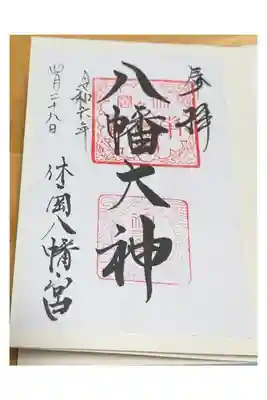 奉拝
八幡大神
令和六年
四月二十八日
休岡八幡宮